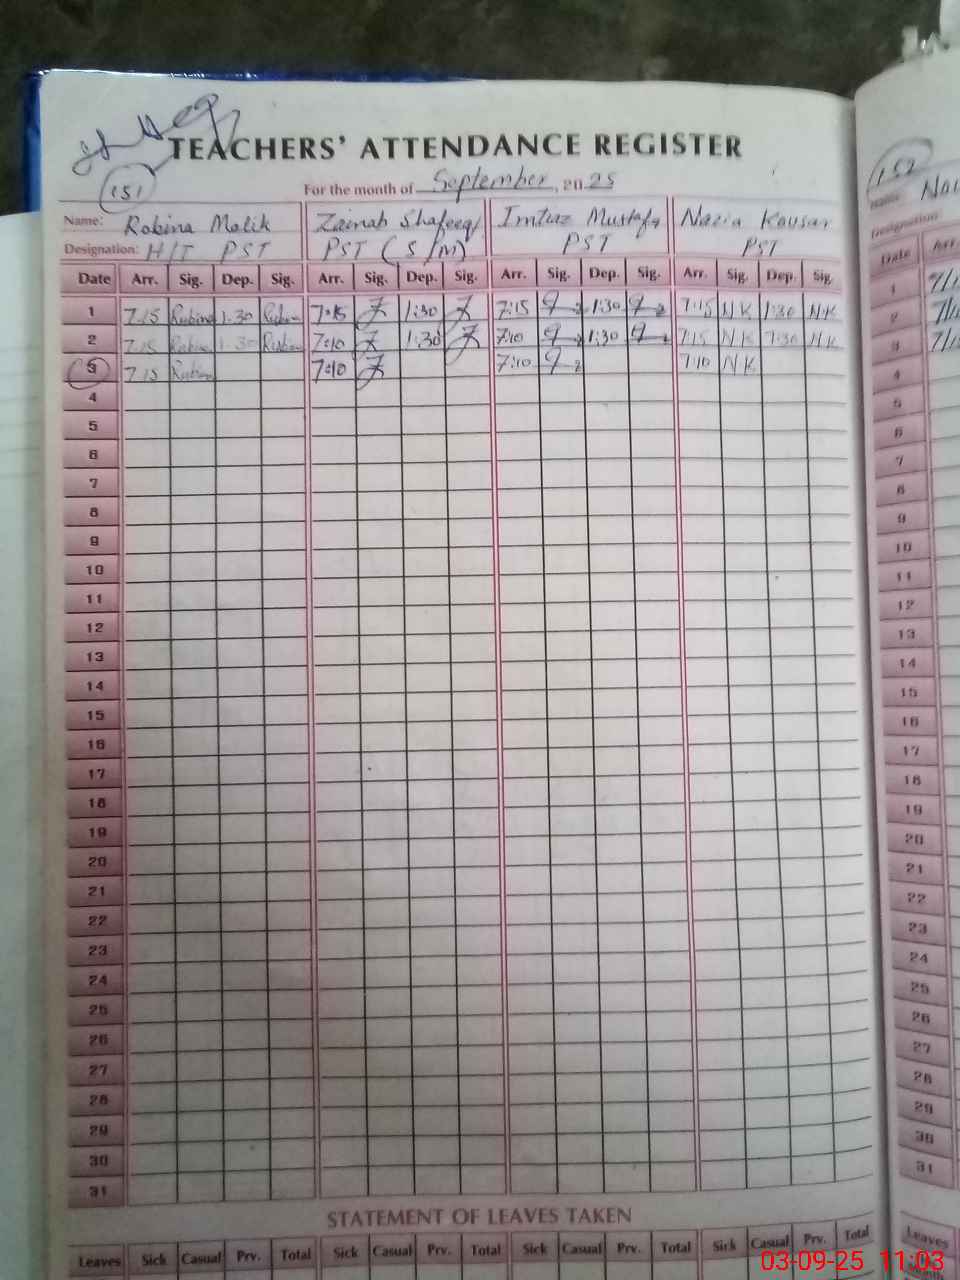 TEACHERS' ATTENDANCE REGISTER
151
For the month of September, 2025
Name: Robina Malik Zainab Shafeeq Imtiaz Mustafa Nazia Kausar
Designation: H/T PST PST (S/M) PST PST
Date Arr. Sig. Dep. Sig. Arr. Sig. Dep. Sig. Arr. Sig. Dep. Sig. Arr. Sig. Dep. Sig.
1 7:15 Robina 1:30 Robina 7:15 1:30 7:15 1:30 7:15 NK 1:30 NK
2 7:15 Robina 1:30 Robina 7:10 1:30 7:10 1:30 7:15 NK 1:30 NK
3 7:15 Robina 7:10 7:10 7:10 NK
4
5
6
7
8
9
10
11
12
13
14
15
16
17
18
19
20
21
22
23
24
25
26
27
28
29
30
31
STATEMENT OF LEAVES TAKEN
Leaves Sick Casual Prv. Total Sick Casual Prv. Total Sick Casual Prv. Total Sick Casual Prv. Total
152
Name:
Designation
Date Arr.
1
2
3
4
5
6
7
8
9
10
11
12
13
14
15
16
17
18
19
20
21
22
23
24
25
26
27
28
29
30
31
Leaves
03-09-25 11:03